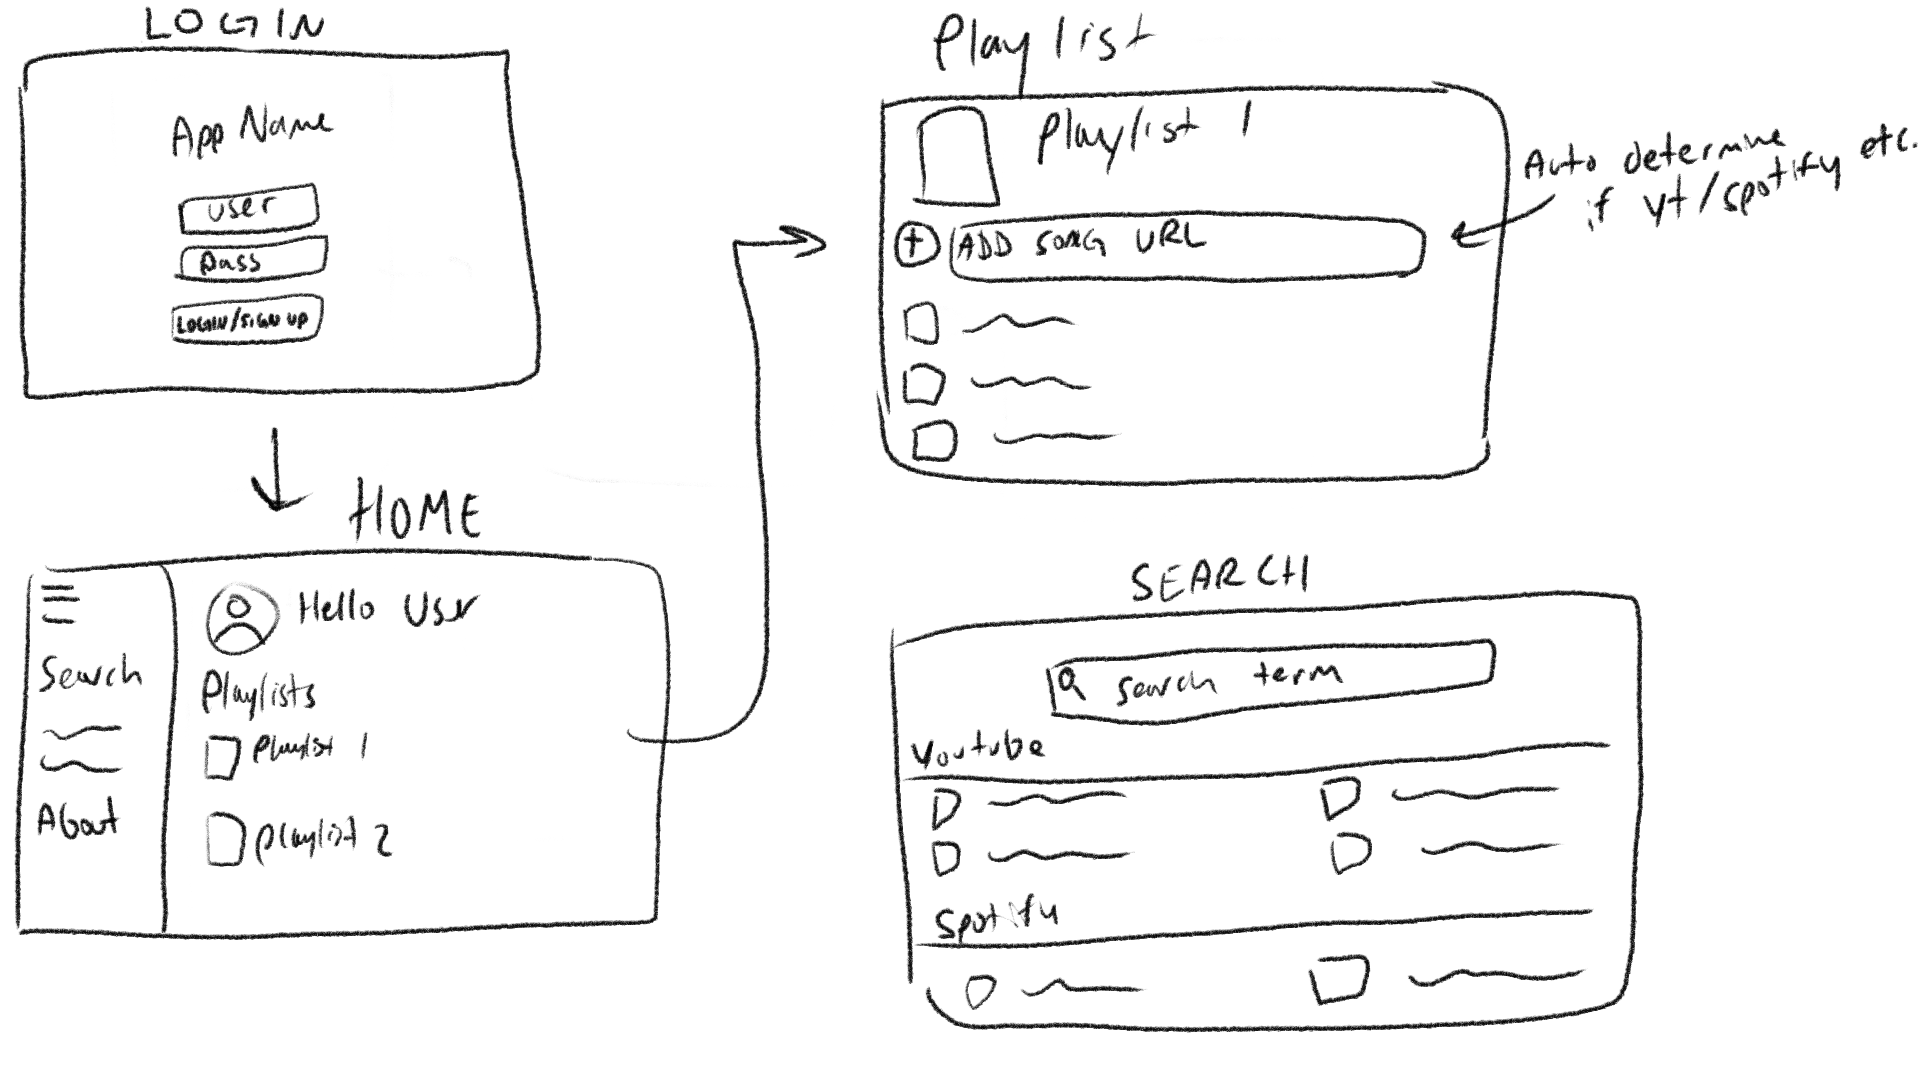 LOGIN
App Name
user
pass
LOGIN/SIGN UP
HOME
Search
About
Hello User
Playlists
Playlist 1
Playlist 2
Playlist
Playlist 1
+ ADD SONG URL
Auto determine
if yt/spotify etc.
SEARCH
search term
Youtube
Spotify